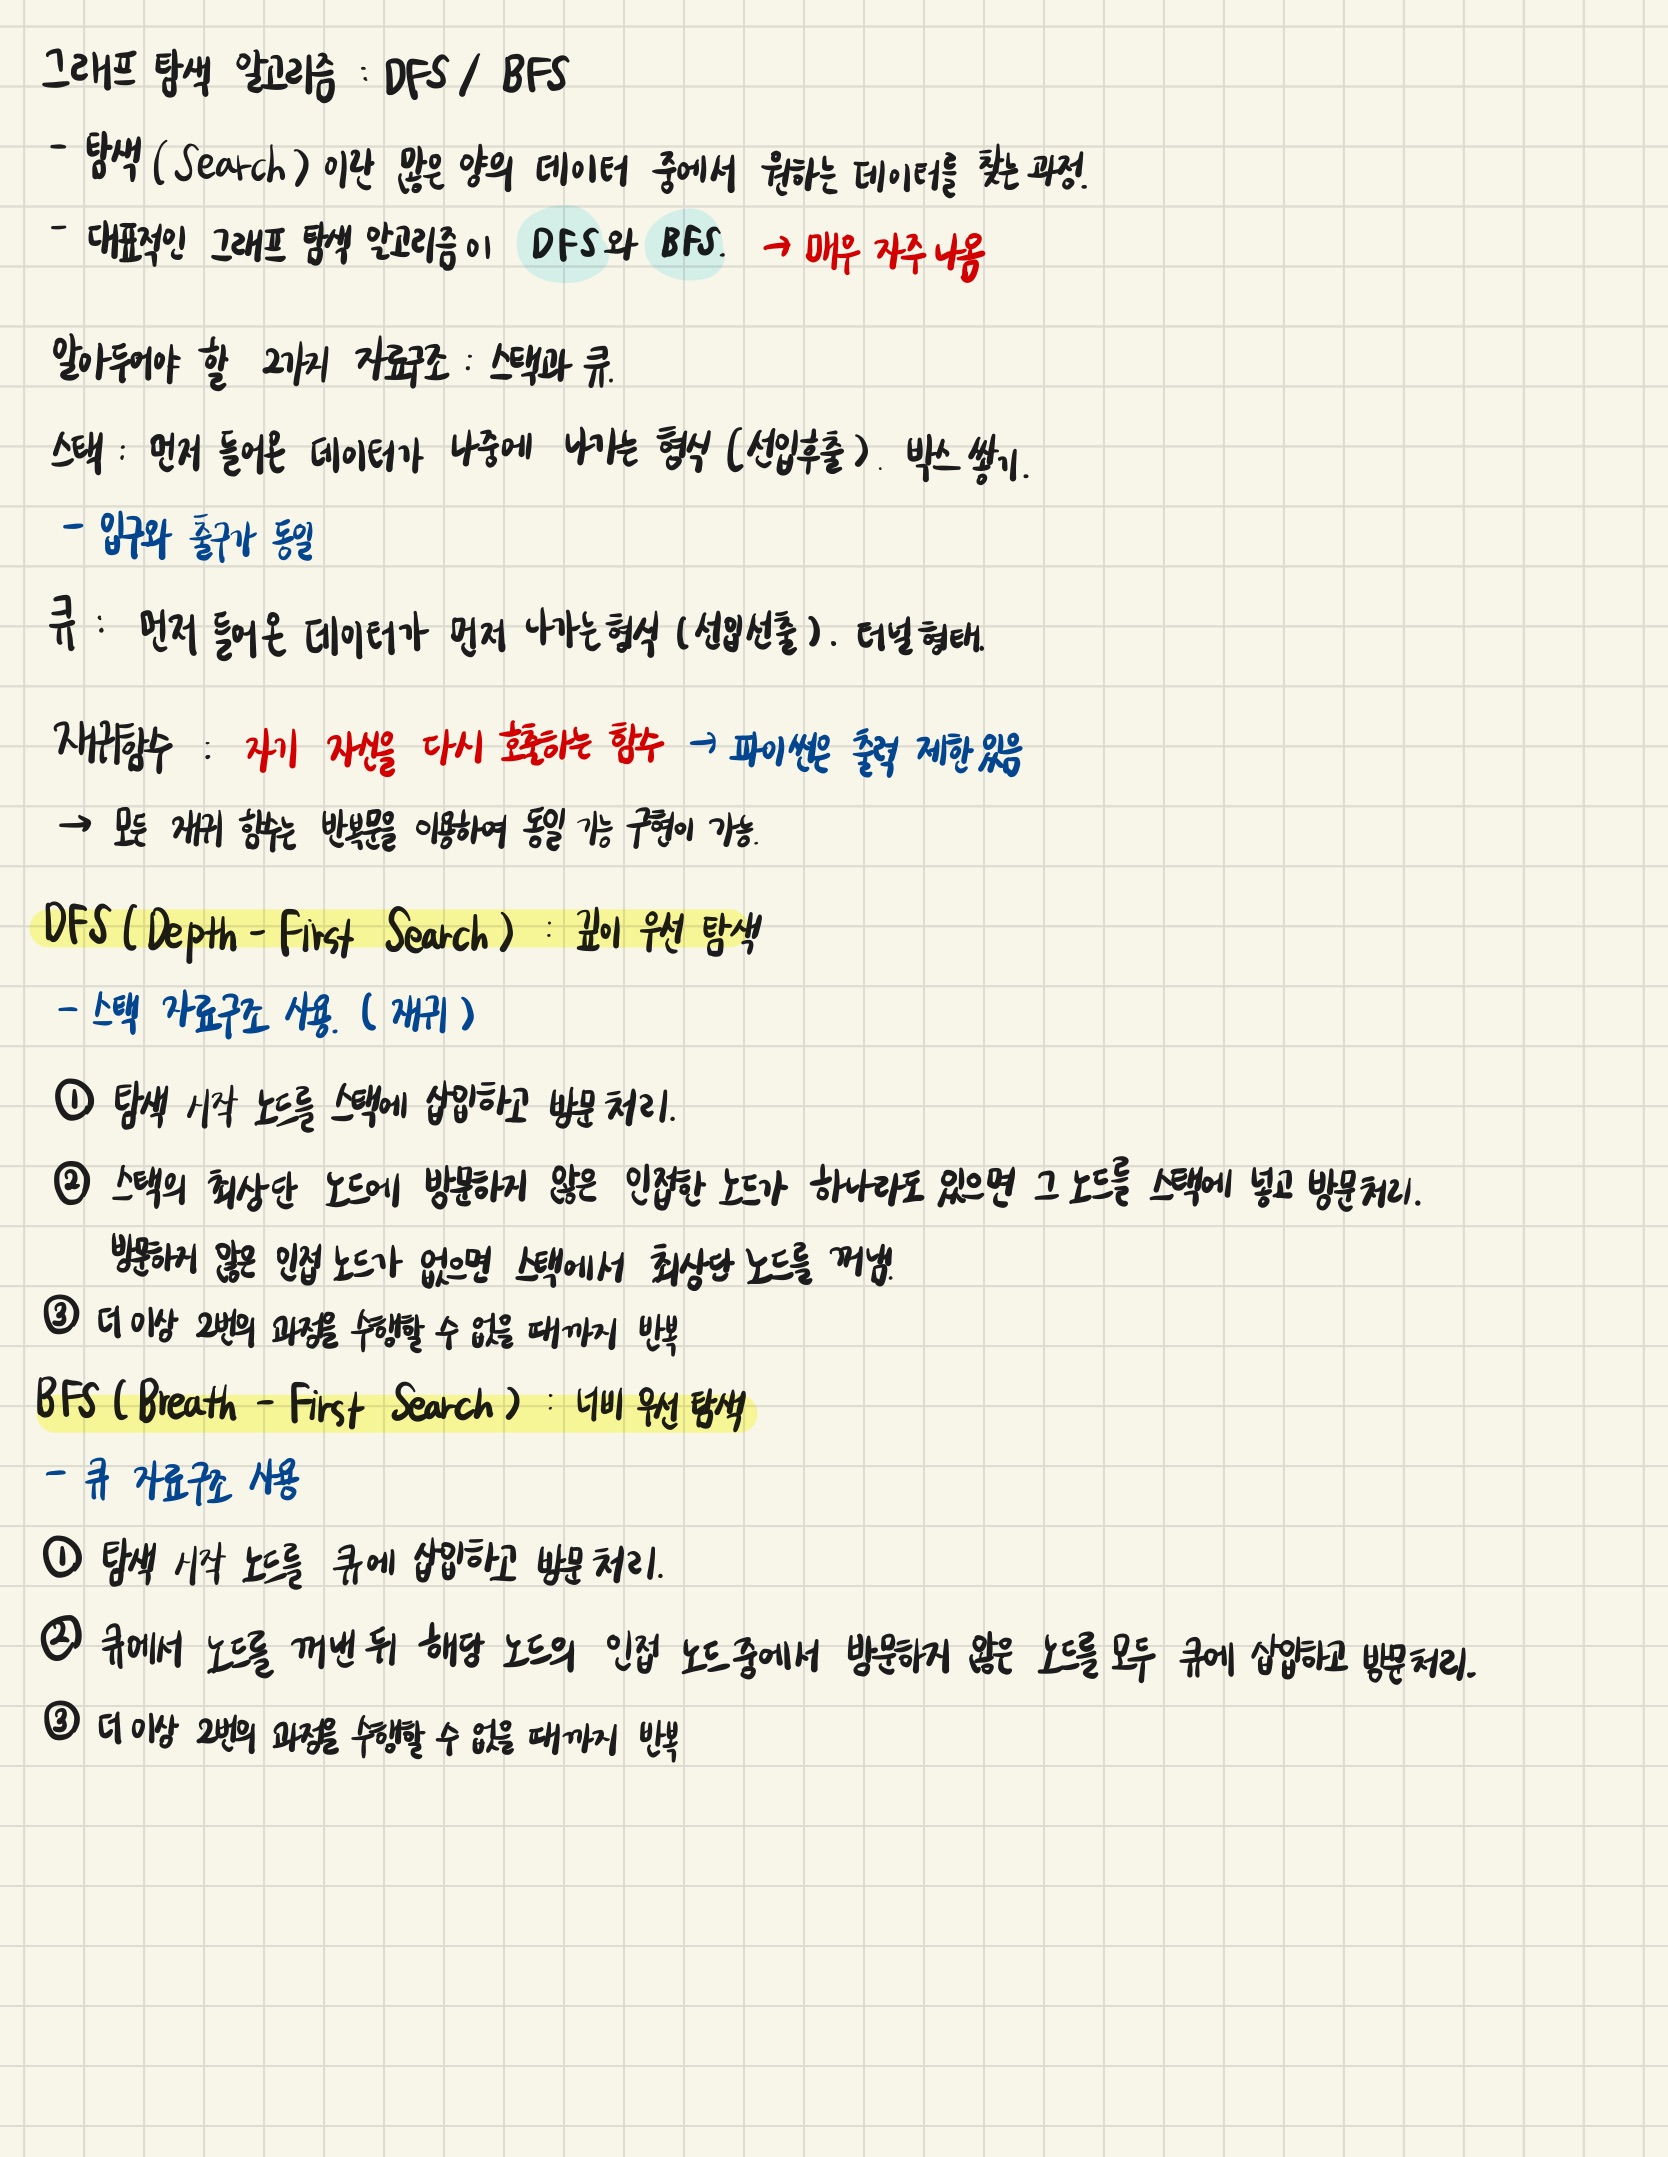 그래프 탐색 알고리즘 : DFS / BFS
- 탐색 (Search) 이란 많은 양의 데이터 중에서 원하는 데이터를 찾는 과정.
- 대표적인 그래프 탐색 알고리즘이 DFS와 BFS. → 매우 자주 나옴
알아두어야 할 2가지 자료구조 : 스택과 큐.
스택 : 먼저 들어온 데이터가 나중에 나가는 형식 (선입후출). 박스 쌓기.
- 입구와 출구가 동일
큐 : 먼저 들어온 데이터가 먼저 나가는 형식 (선입선출). 터널 형태.
재귀함수 : 자기 자신을 다시 호출하는 함수 → 파이썬은 출력 제한 있음
→ 모든 재귀 함수는 반복문을 이용하여 동일 기능 구현이 가능.
DFS (Depth - First Search) : 깊이 우선 탐색
- 스택 자료구조 사용. (재귀)
① 탐색 시작 노드를 스택에 삽입하고 방문 처리.
② 스택의 최상단 노드에 방문하지 않은 인접한 노드가 하나라도 있으면 그 노드를 스택에 넣고 방문처리.
방문하지 않은 인접 노드가 없으면 스택에서 최상단 노드를 꺼냄.
③ 더 이상 2번의 과정을 수행할 수 없을 때까지 반복
BFS (Breath - First Search) : 너비 우선 탐색
- 큐 자료구조 사용
① 탐색 시작 노드를 큐에 삽입하고 방문 처리.
② 큐에서 노드를 꺼낸 뒤 해당 노드의 인접 노드 중에서 방문하지 않은 노드를 모두 큐에 삽입하고 방문처리.
③ 더 이상 2번의 과정을 수행할 수 없을 때까지 반복